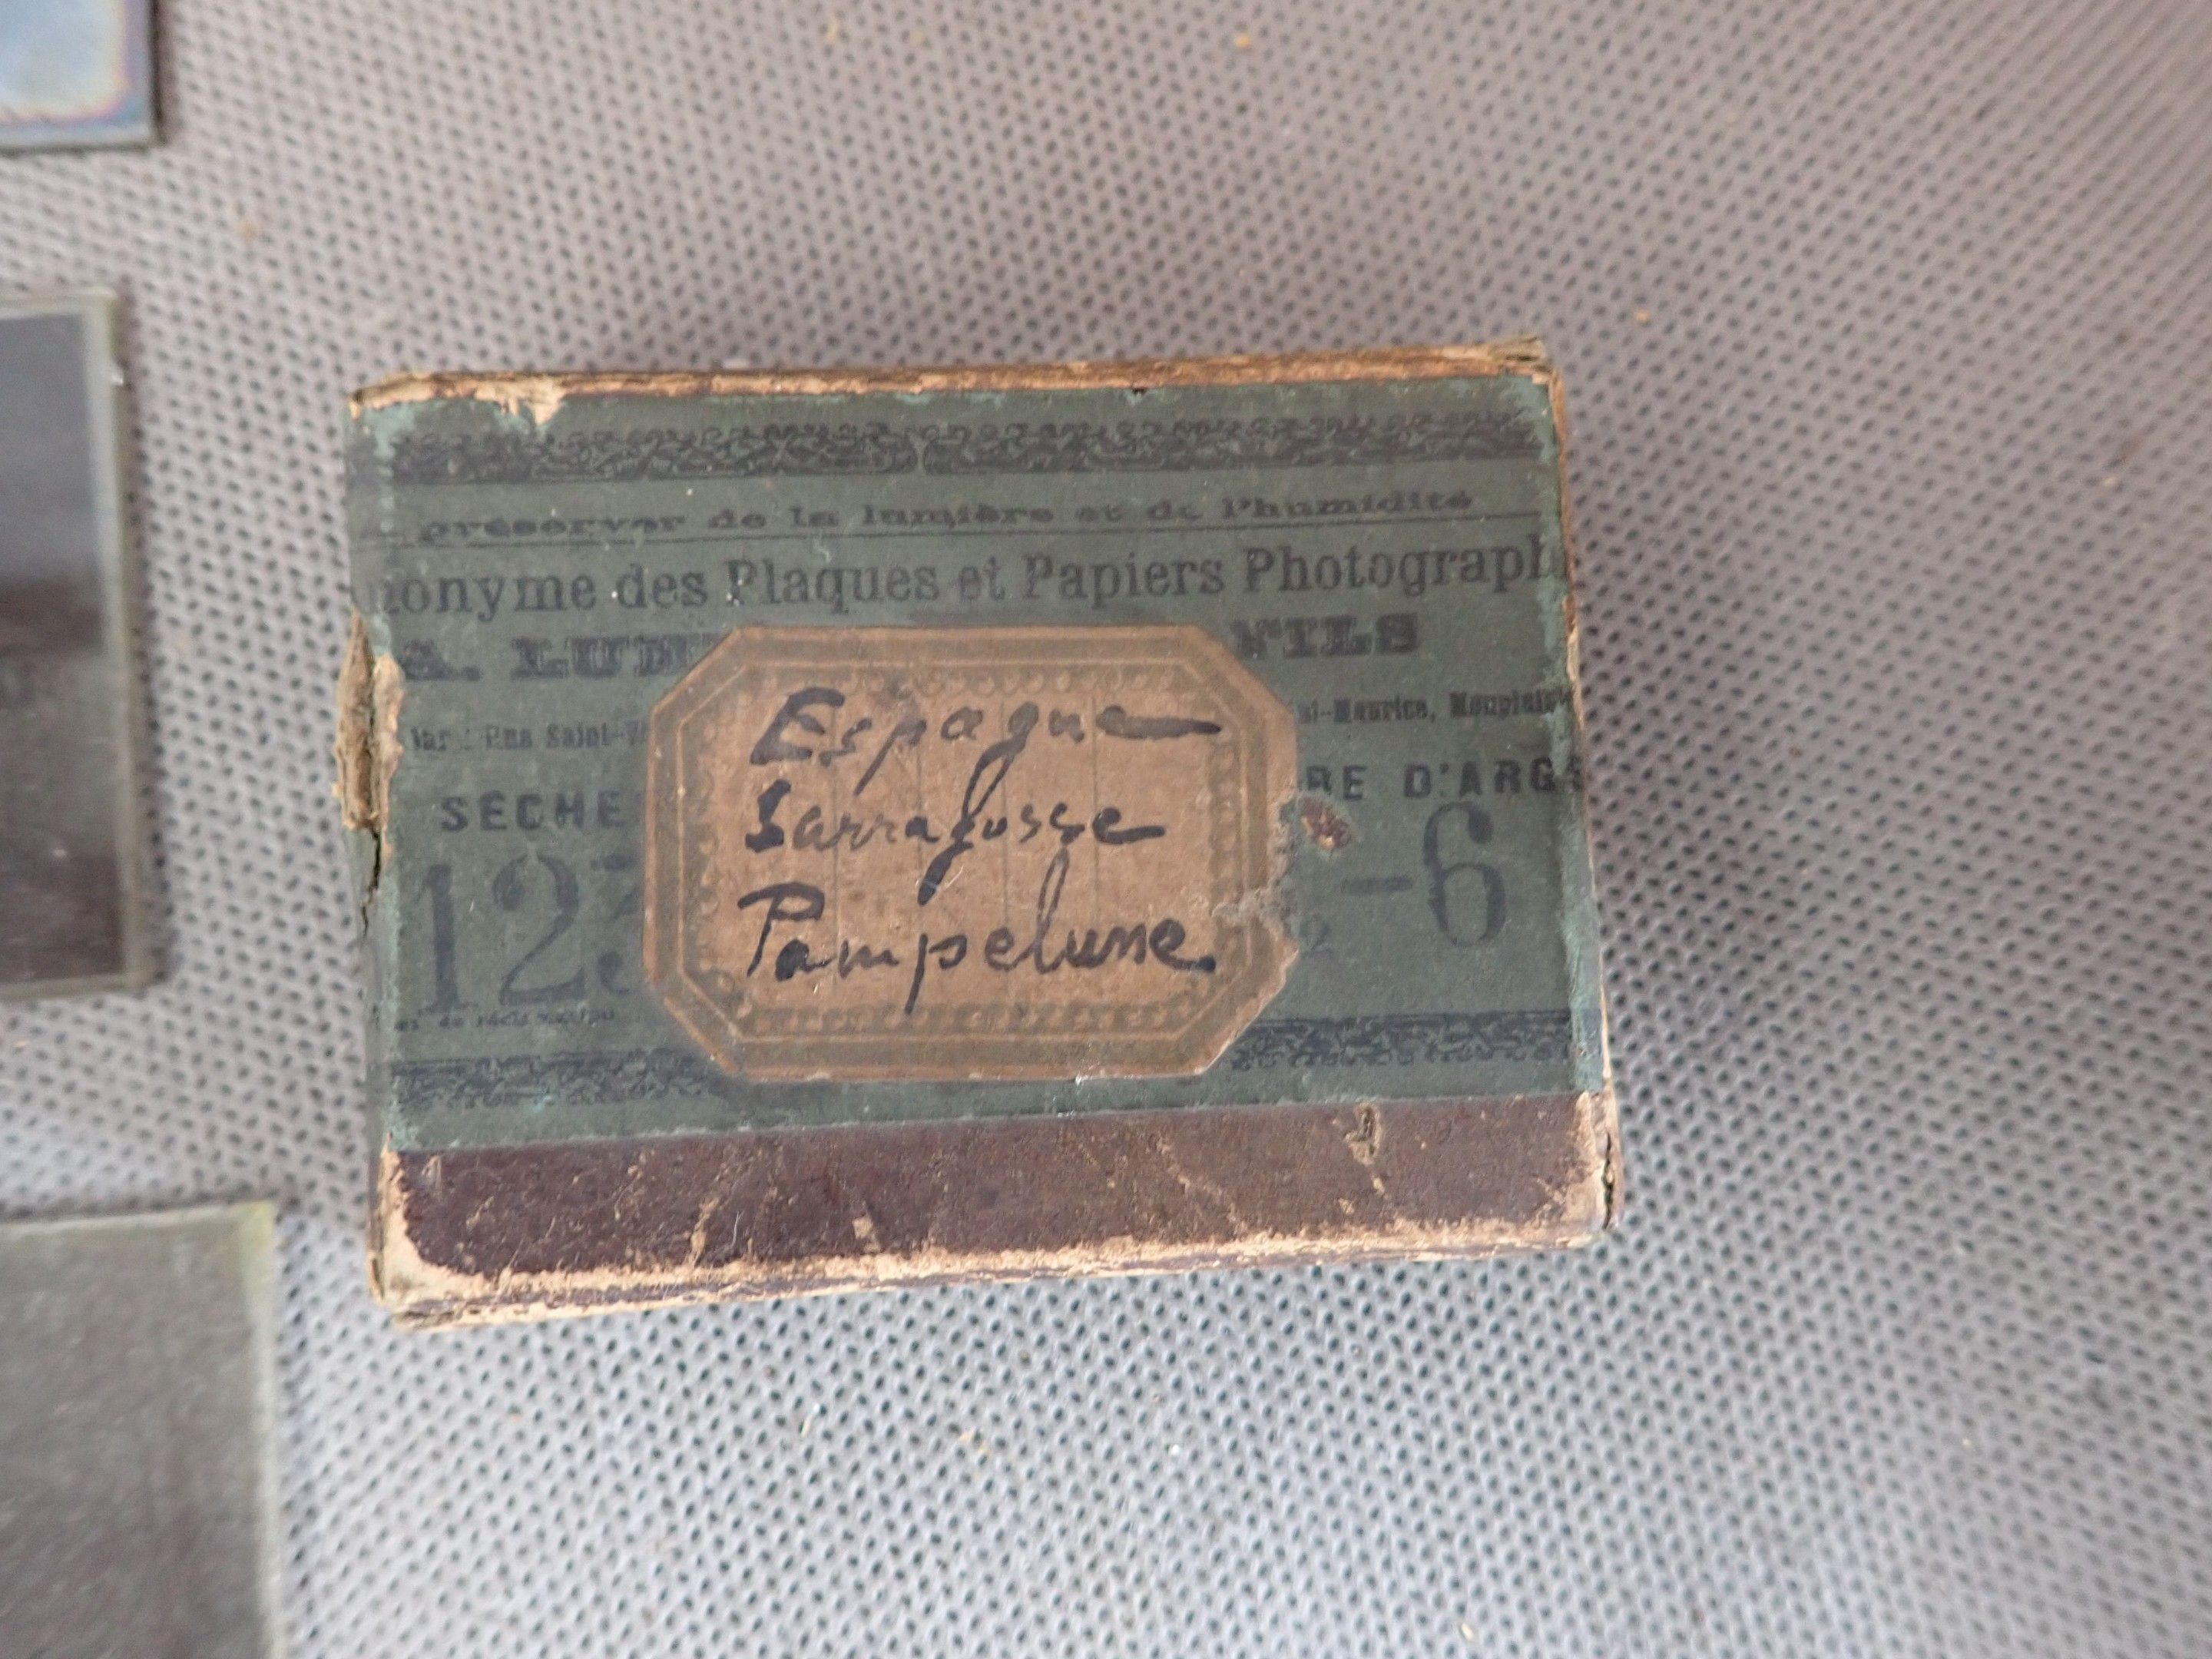 préserver de la lumière et de l'humidité
nonyme des Plaques et Papiers Photograph
A. LUM FILS
Rue Saint-V i-Maurice, Monplaisi
SECHE RE D'ARG
12 2 -6
de réclamation
Espagne
Sarragosse
Pampelune